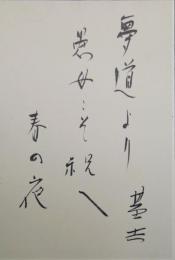 夢道より
こそ祝へ
春の夜
基吉